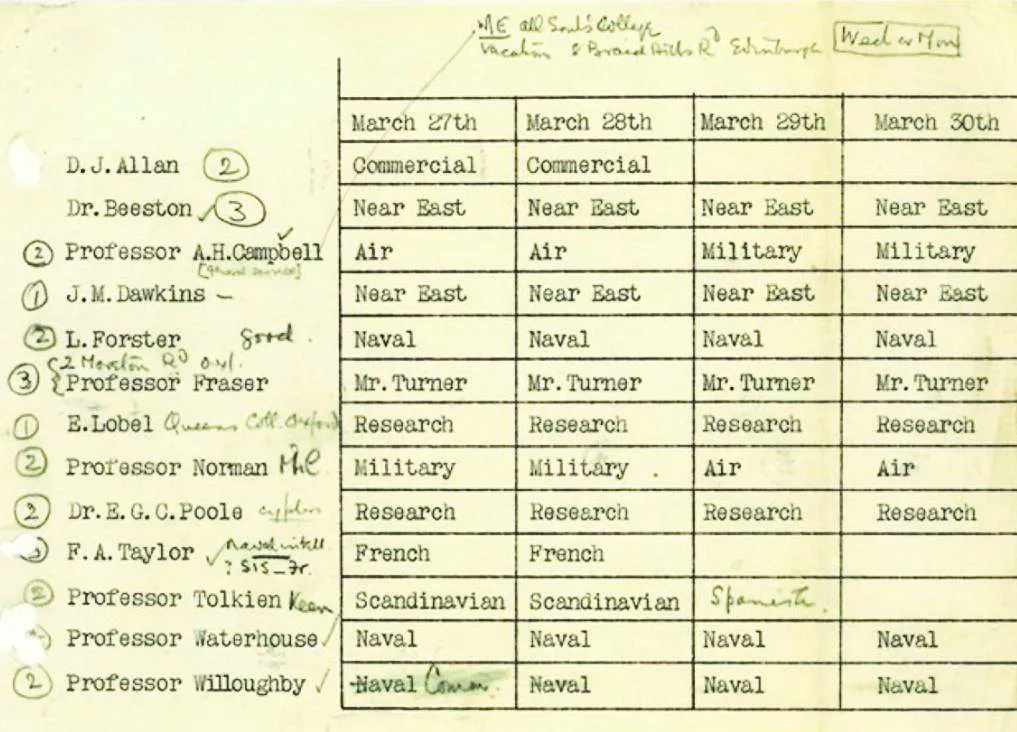 ME All Soul's College
Vacation 8 Braid Hills Rd Edinburgh Wed or Mon
March 27th March 28th March 29th March 30th
D.J.Allan 2 Commercial Commercial
Dr.Beeston 3 Near East Near East Near East Near East
2 Professor A.H.Campbell Air Air Military Military
1 J.M.Dawkins Near East Near East Near East Near East
2 L.Forster Good. Naval Naval Naval Naval
2 Rd Oxf.
3 Professor Fraser Mr.Turner Mr.Turner Mr.Turner Mr.Turner
1 E.Lobel Queens Coll. Oxford Research Research Research Research
2 Professor Norman Military Military Air Air
2 Dr.E.G.C.Poole Research Research Research Research
Naval
F.A.Taylor French French
? SIS_Fr.
2 Professor Tolkien Keen Scandinavian Scandinavian Spanish.
Professor Waterhouse Naval Naval Naval Naval
2 Professor Willoughby Naval Comm. Naval Naval Naval